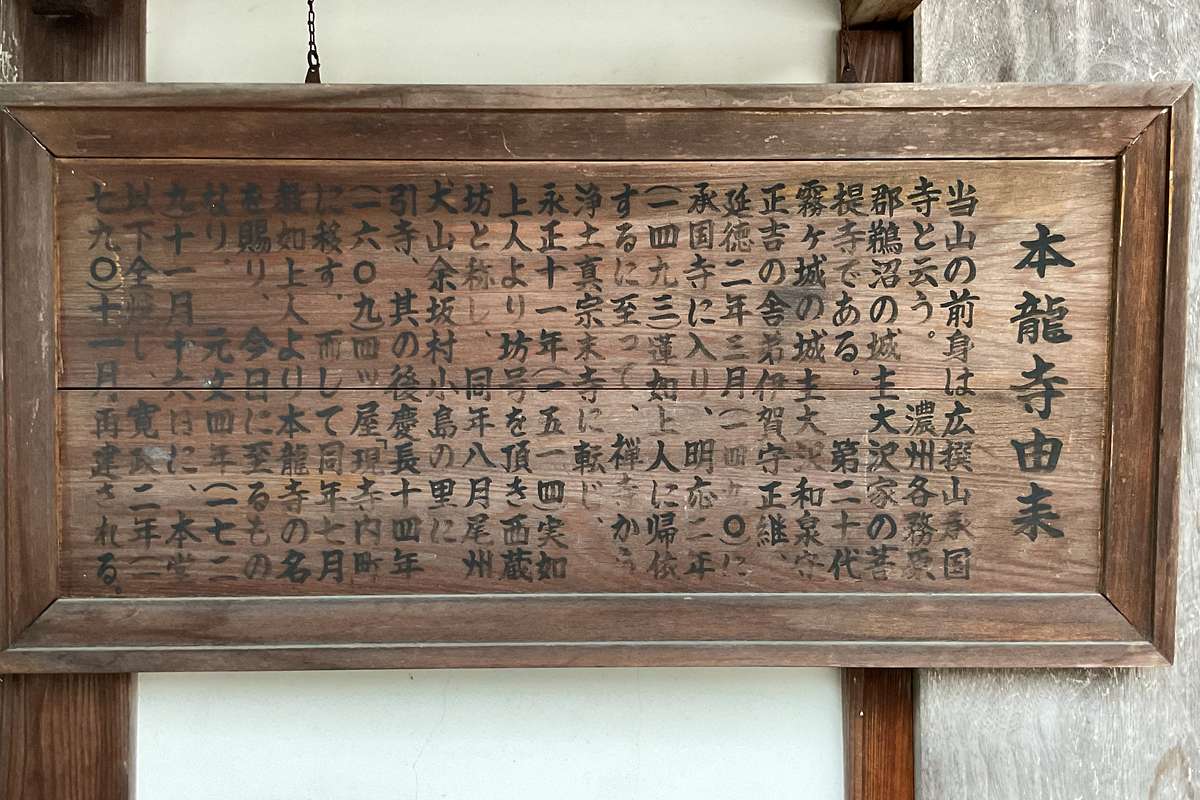 本龍寺由来
当山の前身は広撰山承国
寺と云う。 濃州各務原
郡鵜沼の城主大沢家の菩
提寺である。 第二十代
霧ヶ城の城主大沢和泉守
正吉の舎弟伊賀守正継、
延徳二年三月(一四九〇)に
承国寺に入り、明応二年
(一四九三)蓮如上人に帰依
するに至って、禅寺から
浄土真宗末寺に転じ、
永正十一年(一五一四)実如
上人より坊号を頂き西蔵
坊と称し、同年八月尾州
犬山余坂村小島の里に
引寺、其の後慶長十四年
(一六〇九)四ッ屋「現寺内町
に移す、而して同年七月
教如上人より本龍寺の名
を賜り、今日に至るもの
なり、元文四年(一七二
九)十一月十六日に、本堂
以下全焼し、寛政二年(一
七九〇)十一月再建される。